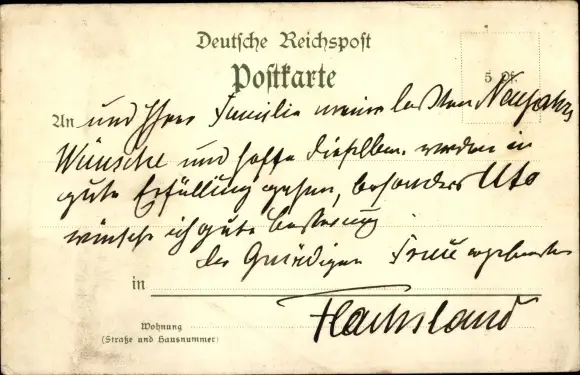 Deutsche Reichspost
Postkarte
5 Pf.
An und Ihrer Familie meine besten Neujahrs
Wünsche und hoffe dieselben werden in
gute Erfüllung gehen, besonders
wünsche ich gute Besserung
der Gnädigen Frau ergebenster
in
Flachsland
Wohnung
(Straße und Hausnummer)